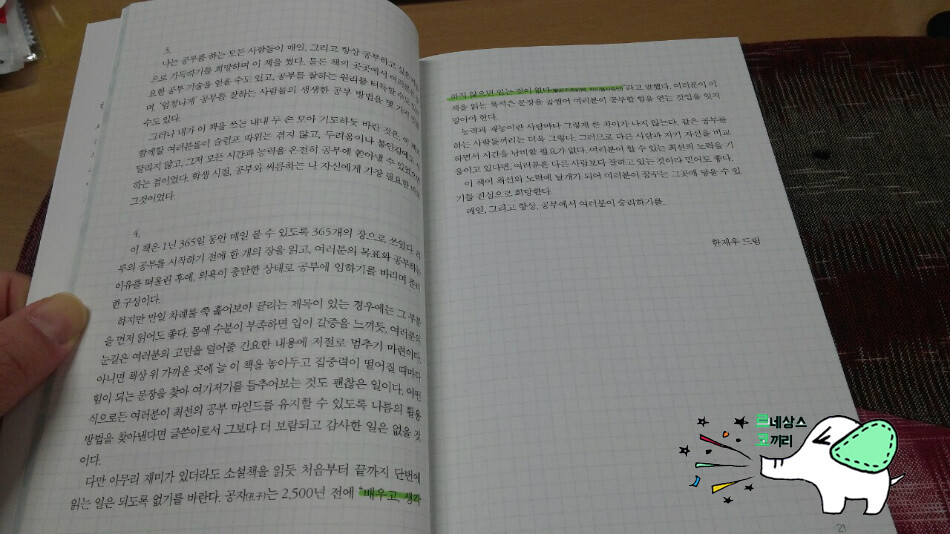 3.
나는 공부를 하는 모든 사람들이 매일, 그리고 항상 공부하고 싶은
으로 가득하기를 희망하며 이 책을 썼다. 물론 책의 곳곳에서 여러분이
요한 공부 기술을 얻을 수도 있고, 공부를 잘하는 원리를 터득할 수도
며, '엄청나게' 공부를 잘하는 사람들의 생생한 공부 방법을 몇 가지
수도 있다.
그러나 내가 이 책을 쓰는 내내 두 손 모아 기도하듯 바란 것은,
함께할 여러분들이 슬럼프 따위는 겪지 않고, 두려움이나 불안감에
달리지 않고, 그저 모든 시간과 능력을 온전히 공부에 쏟아낼 수 있었으면
하는 점이었다. 학생 시절, 공부와 씨름하는 나 자신에게 가장 필요한
그것이었다.
4.
이 책은 1년 365일 동안 매일 볼 수 있도록 365개의 장으로 쓰였다.
루의 공부를 시작하기 전에 한 개의 장을 읽고, 여러분의 목표와 공부하는
이유를 떠올린 후에, 의욕이 충만한 상태로 공부에 임하기를 바라며 준비
한 구성이다.
하지만 만일 차례를 쭉 훑어보아 끌리는 제목이 있는 경우에는 그 부분
을 먼저 읽어도 좋다. 몸에 수분이 부족하면 입이 갈증을 느끼듯, 여러분의
눈길은 여러분의 고민을 덜어줄 긴요한 내용에 저절로 멈추기 마련이다.
아니면 책상 위 가까운 곳에 늘 이 책을 놓아두고 집중력이 떨어질 때마다
힘이 되는 문장을 찾아 여기저기를 들추어보는 것도 괜찮은 일이다. 어떤
식으로든 여러분이 최선의 공부 마인드를 유지할 수 있도록 나름의 활용
방법을 찾아낸다면 글쓴이로서 그보다 더 보람되고 감사한 일은 없을 것
이다.
다만 아무리 재미가 있더라도 소설책을 읽듯 처음부터 끝까지 단번에
읽는 일은 되도록 없기를 바란다. 공자(孔子)는 2,500년 전에 "배우고, 생각
하지 않으면 얻는 것이 없다 라고 말했다. 여러분이 이
책을 읽는 목적은 문장을 곱씹어 여러분이 공부할 힘을 얻는 것임을 잊지
말아야 한다.
능력과 재능이란 사람마다 그렇게 큰 차이가 나지 않는다. 같은 공부를
하는 사람들끼리는 더욱 그렇다. 그러므로 다른 사람과 자기 자신을 비교
하면서 시간을 낭비할 필요가 없다. 여러분이 할 수 있는 최선의 노력을 기
울이고 있다면, 여러분은 다른 사람보다 잘하고 있는 것이라 믿어도 좋다.
이 책이 최선의 노력에 날개가 되어 여러분이 꿈꾸는 그곳에 닿을 수 있
기를 진심으로 희망한다.
매일, 그리고 항상, 공부에서 여러분이 승리하기를.
한재우 드림
르네상스
코끼리
21